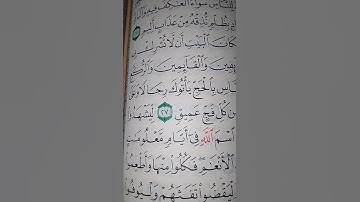 لنَّاسِ سَوَآءً ٱلْعَٰكِفُ فِيهِ وَٱلْبَا
بِظُلْمٍ نُّذِقْهُ مِنْ عَذَابٍ أَلِيمٍ ٢٥
كَانَ ٱلْبَيْتِ أَن لَّا تُشْرِكْ
ئِفِينَ وَٱلْقَآئِمِينَ وَٱلرُّكَّ
لنَّاسِ بِٱلْحَجِّ يَأْتُوكَ رِجَالًا وَعَلَىٰ
مِن كُلِّ فَجٍّ عَمِيقٍ ٢٧ لِّيَشْهَدُوا۟
ٱسْمَ ٱللَّهِ فِىٓ أَيَّامٍ مَّعْلُومَٰتٍ
ٱلْأَنْعَٰمِ فَكُلُوا۟ مِنْهَا وَأَطْعِمُوا۟
لْيَقْضُوا۟ تَفَثَهُمْ وَلْيُوفُوا۟